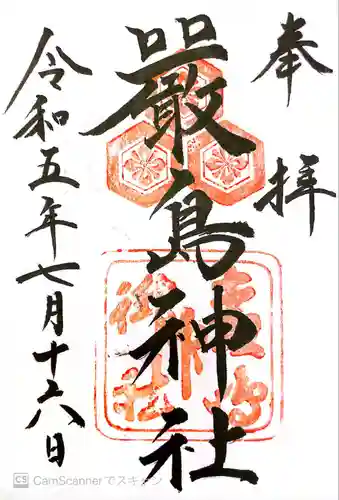 奉拝
嚴島神社
令和五年七月十六日
CS CamScannerでスキャン